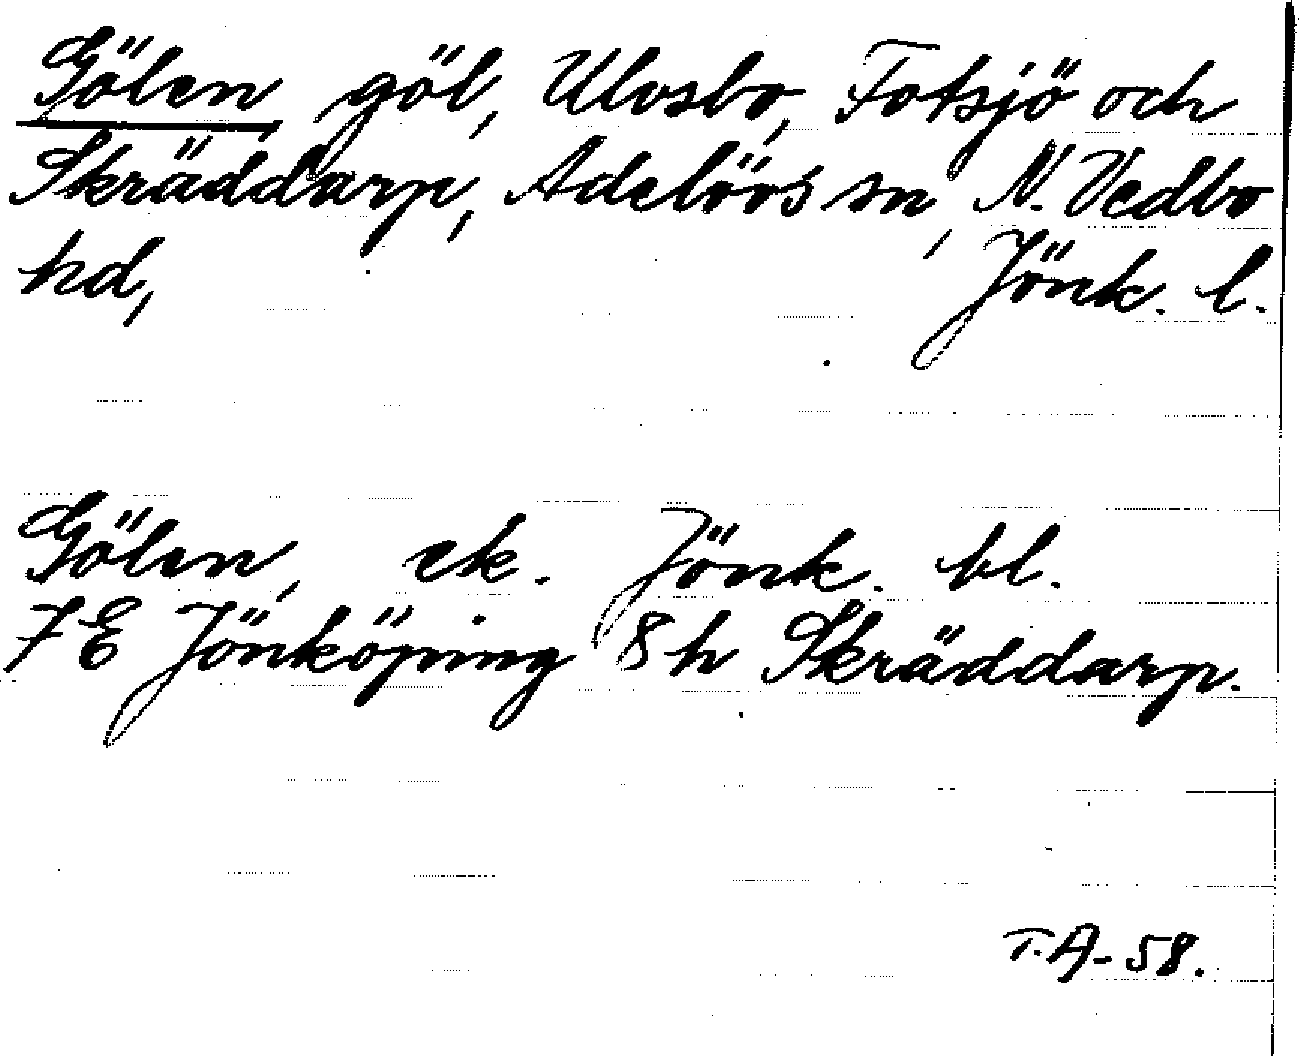 Gölen, göl, Ulvsbo, Fotsjö och
Skräddarp, Adelövs sn, N. Vedbo
hd, Jönk. l.
Gölen, ek. Jönk. bl.
7E Jönköping 8h Skräddarp.
T.A-58.